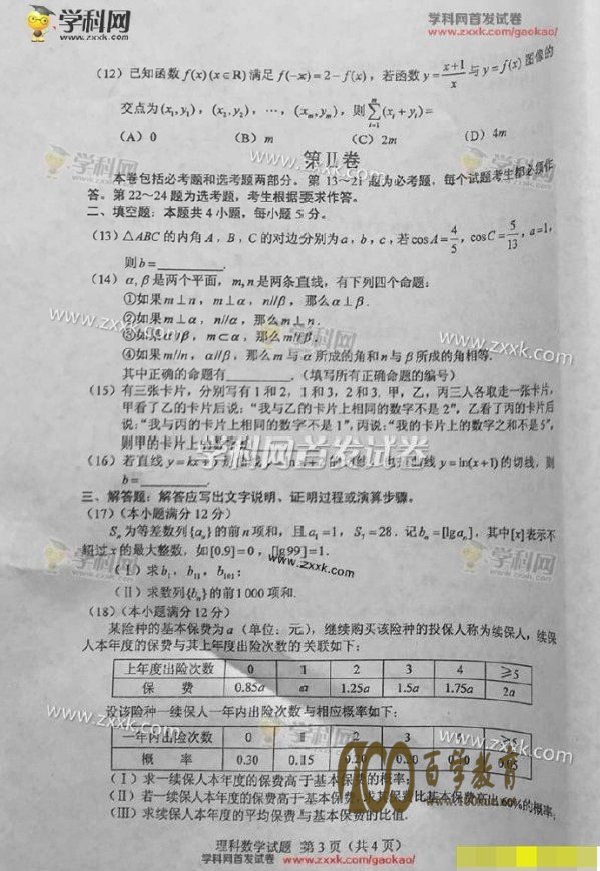 学科网
www.zxxk.com
学科网首发试卷
www.zxxk.com/gaokao/
(12)已知函数f(x)(x∈R)满足f(-x)=2-f(x),若函数y=\frac{x+1}{x}与y=f(x)图像的
交点为(x₁,y₁),(x₂,y₂),…,(xₘ,yₘ),则\sum_{i=1}^{m}(xᵢ+yᵢ)=
(A)0 (B)m (C)2m (D)4m
第Ⅱ卷
本卷包括必考题和选考题两部分。第13~21题为必考题,每个试题考生都必须作
答。第22~24题为选考题,考生根据要求作答。
二、填空题:本题共4小题,每小题5分。
(13)△ABC的内角A,B,C的对边分别为a,b,c,若cosA=\frac{4}{5},cosC=\frac{5}{13},a=1,
则b=________.
(14)α,β是两个平面,m,n是两条直线,有下列四个命题:
①如果m⊥n,m⊥α,n//β,那么α⊥β.
②如果m⊥α,n//α,那么m⊥n.
③如果α//β,m⊂α,那么m//β.
④如果m//n,α//β,那么m与α所成的角和n与β所成的角相等.
其中正确的命题有________.(填写所有正确命题的编号)
(15)有三张卡片,分别写有1和2,1和3,2和3.甲,乙,丙三人各取走一张卡片,
甲看了乙的卡片后说:“我与乙的卡片上相同的数字不是2”,乙看了丙的卡片后
说:“我与丙的卡片上相同的数字不是1”,丙说:“我的卡片上的数字之和不是5”,
则甲的卡片上的
(16)若直线y=kx 的切线,也是曲线y=ln(x+1)的切线,则
b=________.
三、解答题:解答应写出文字说明、证明过程或演算步骤。
(17)(本小题满分12分)
Sₙ为等差数列{aₙ}的前n项和,且a₁=1,S₇=28.记bₙ=[lg aₙ],其中[x]表示不
超过x的最大整数,如[0.9]=0,[lg99]=1.
(Ⅰ)求b₁,b₁₁,b₁₀₁;
(Ⅱ)求数列{bₙ}的前1000项和.
(18)(本小题满分12分)
某险种的基本保费为a(单位:元),继续购买该险种的投保人称为续保人,续保
人本年度的保费与其上年度出险次数的关联如下:
上年度出险次数 0 1 2 3 4 ≥5
保 费 0.85a a 1.25a 1.5a 1.75a 2a
设该险种一续保人一年内出险次数与相应概率如下:
一年内出险次数 0 1 2 3 4 ≥5
概 率 0.30 0.15 0.20 0.20 0.10 0.05
(Ⅰ)求一续保人本年度的保费高于基本保费的概率;
(Ⅱ)若一续保人本年度的保费高于基本保费,求其保费比基本保费高出60%的概率;
(Ⅲ)求续保人本年度的平均保费与基本保费的比值.
100百学教育
理科数学试题 第3页(共4页)
学科网首发试卷 www.zxxk.com/gaokao/